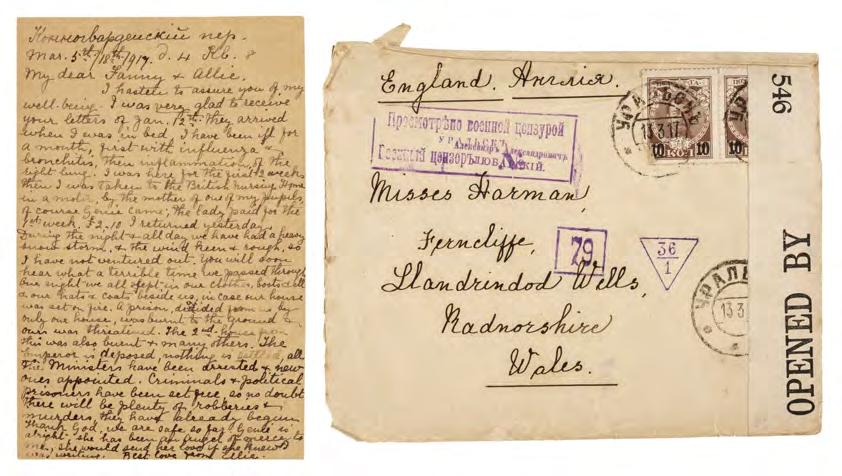 Конногвардейскiй пер.
Mar. 5th/18th/1917. д. 4 Кв. 8
My dear Fanny & Allie.
I hasten to assure you of my
well-being. I was very glad to receive
your letters of Jan. 12th. They arrived
when I was in bed. I have been ill for
a month, first with influenza &
bronchitis, then inflammation of the
right lung. I was here for the first 2 weeks
then I was taken to the British Nursing Home
in a motor, by the mother of one of my pupils,
of course Genie came, the lady paid for the
1st week. £2.10. I returned yesterday.
During the night & all day we have had a heavy
snow storm, & the wind keen & rough, so
I have not ventured out. You will soon
hear what a terrible time we passed through
One night we all slept in our clothes, boots &all
& our hats & coats beside us, in case our house
was set on fire. A prison, divided from us by
only one house, was burnt to the ground &
ours was threatened. The 2nd house from
this was also burnt & many others. The
Emperor is deposed, nothing is settled, all
the Ministers have been arrested & new
ones appointed. Criminals & political
prisoners have been set free, so no doubt
there will be plenty of robberies &
murders, they have already begun
Thank God, we are safe so far. Genie is
alright, she has been an angel of mercy to
me, she would send her love if she knew I
was writing. Best love from Ellie.
England. Англiя.
Просмотрѣно военной цензурой
УРАЛЬСКЪ
Александръ Александровичъ
Военный цензоръ ЛЮБАВСКIЙ.
Misses Harman,
Ferncliffe,
Llandrindod Wells,
Radnorshire
Wales.
79
36
1
УРАЛЬСКЪ
13 3 17
10 КОП 10
10
УРАЛЬ
13 3
546
OPENED BY